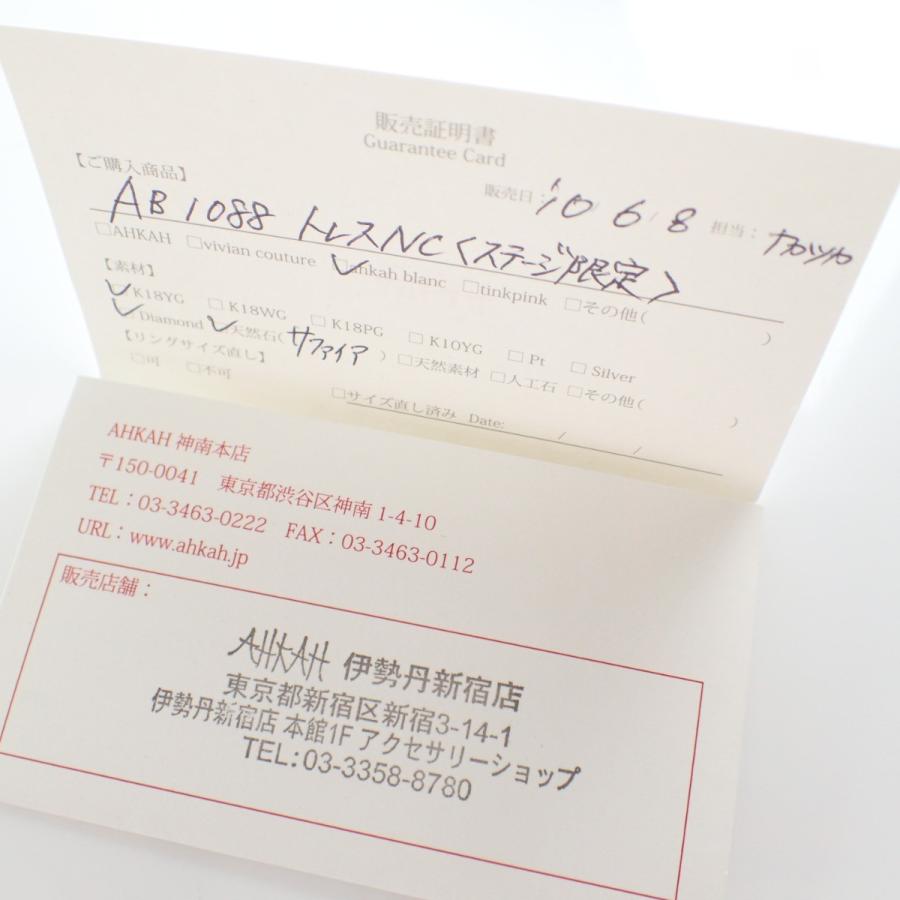 販売証明書
Guarantee Card
【ご購入商品】
販売日：'10 6 8 担当：
AB1088 トレスNC〈ステージ限定〉
□AHKAH □vivian couture ☑ahkah blanc □tinkpink □その他( )
【素材】
☑K18YG □K18WG □K18PG □K10YG □Pt □Silver
☑Diamond ☑天然石(サファイア) □天然素材 □人工石 □その他( )
【リングサイズ直し】
□可 □不可
□サイズ直し済み Date: / /
AHKAH 神南本店
〒150-0041 東京都渋谷区神南 1-4-10
TEL：03-3463-0222 FAX：03-3463-0112
URL：www.ahkah.jp
販売店舗：
AHKAH 伊勢丹新宿店
東京都新宿区新宿3-14-1
伊勢丹新宿店 本館1F アクセサリーショップ
TEL:03-3358-8780